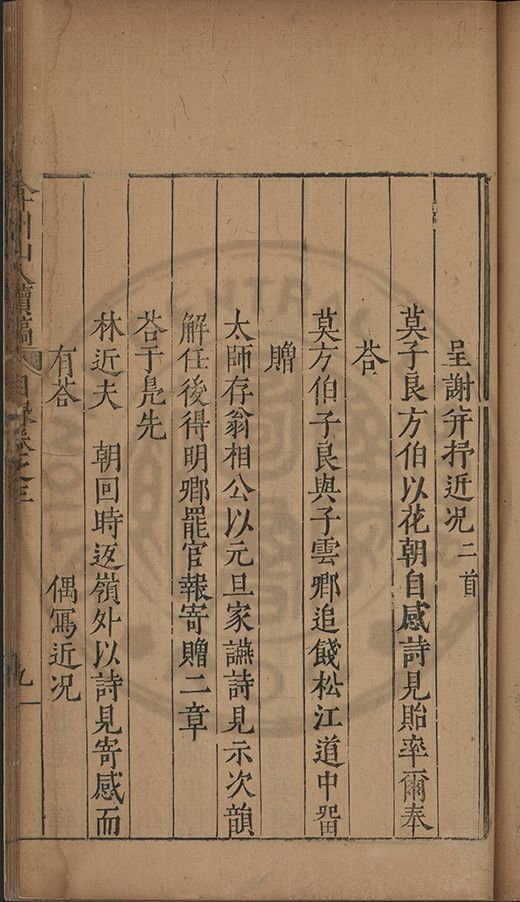 呈謝并抒近况二首
莫子良方伯以花朝自感詩見貽率爾奉
荅
莫方伯子良與子雲鄉追餞松江道中畱
贈
太師存翁相公以元旦家讌詩見示次韻
解任後得明鄉罷官報寄贈二章
荅于鳧先
林近夫 朝回時返嶺外以詩見寄感而
有荅 偶寫近况
弇州山人續稿 目录卷之三 九